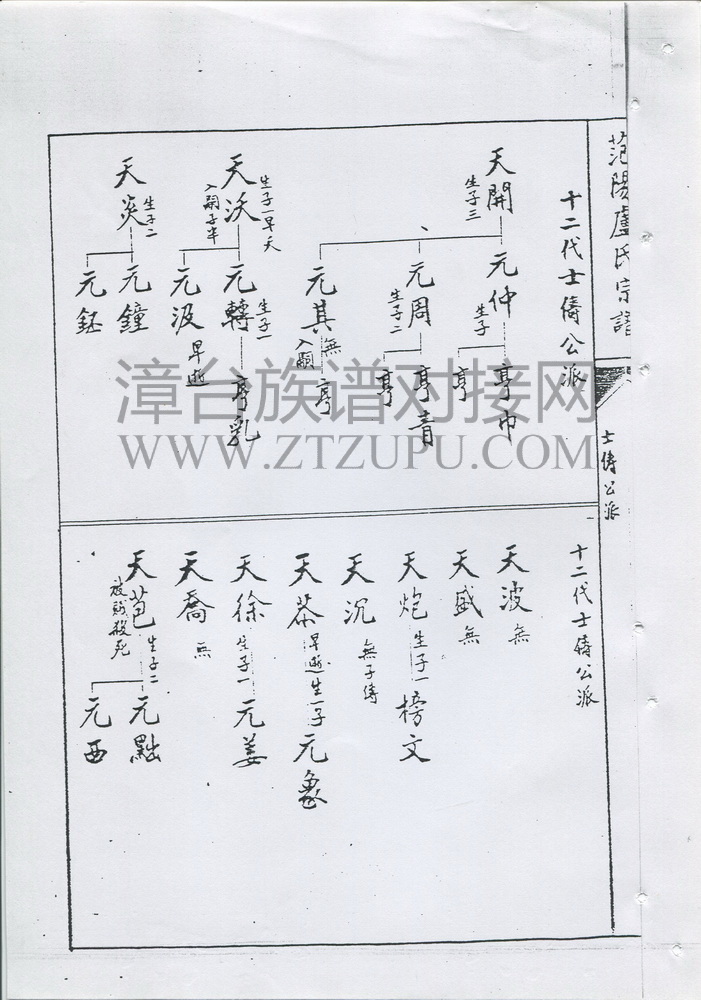 范陽盧氏宗譜
士儔公派
十二代士儔公派
天開
生子三
元仲
生子
亨巾
亨
元周
生子二
亨音
亨
元其
無
入嗣
亨
天沃
生子一早夭
入嗣子半
元轉
生子一
亨乳
元汲
早逝
天炎
生子二
元鐘
元鈺
十二代士儔公派
天波 無
天盛 無
天炮 生子一 榜文
天沉 無子傳
天茶 早逝生一子 元象
天徐 生子一 元姜
天喬 無
天芭 生子二
被 殺死
元點
元西
漳台族谱对接网
WWW.ZTZUPU.COM